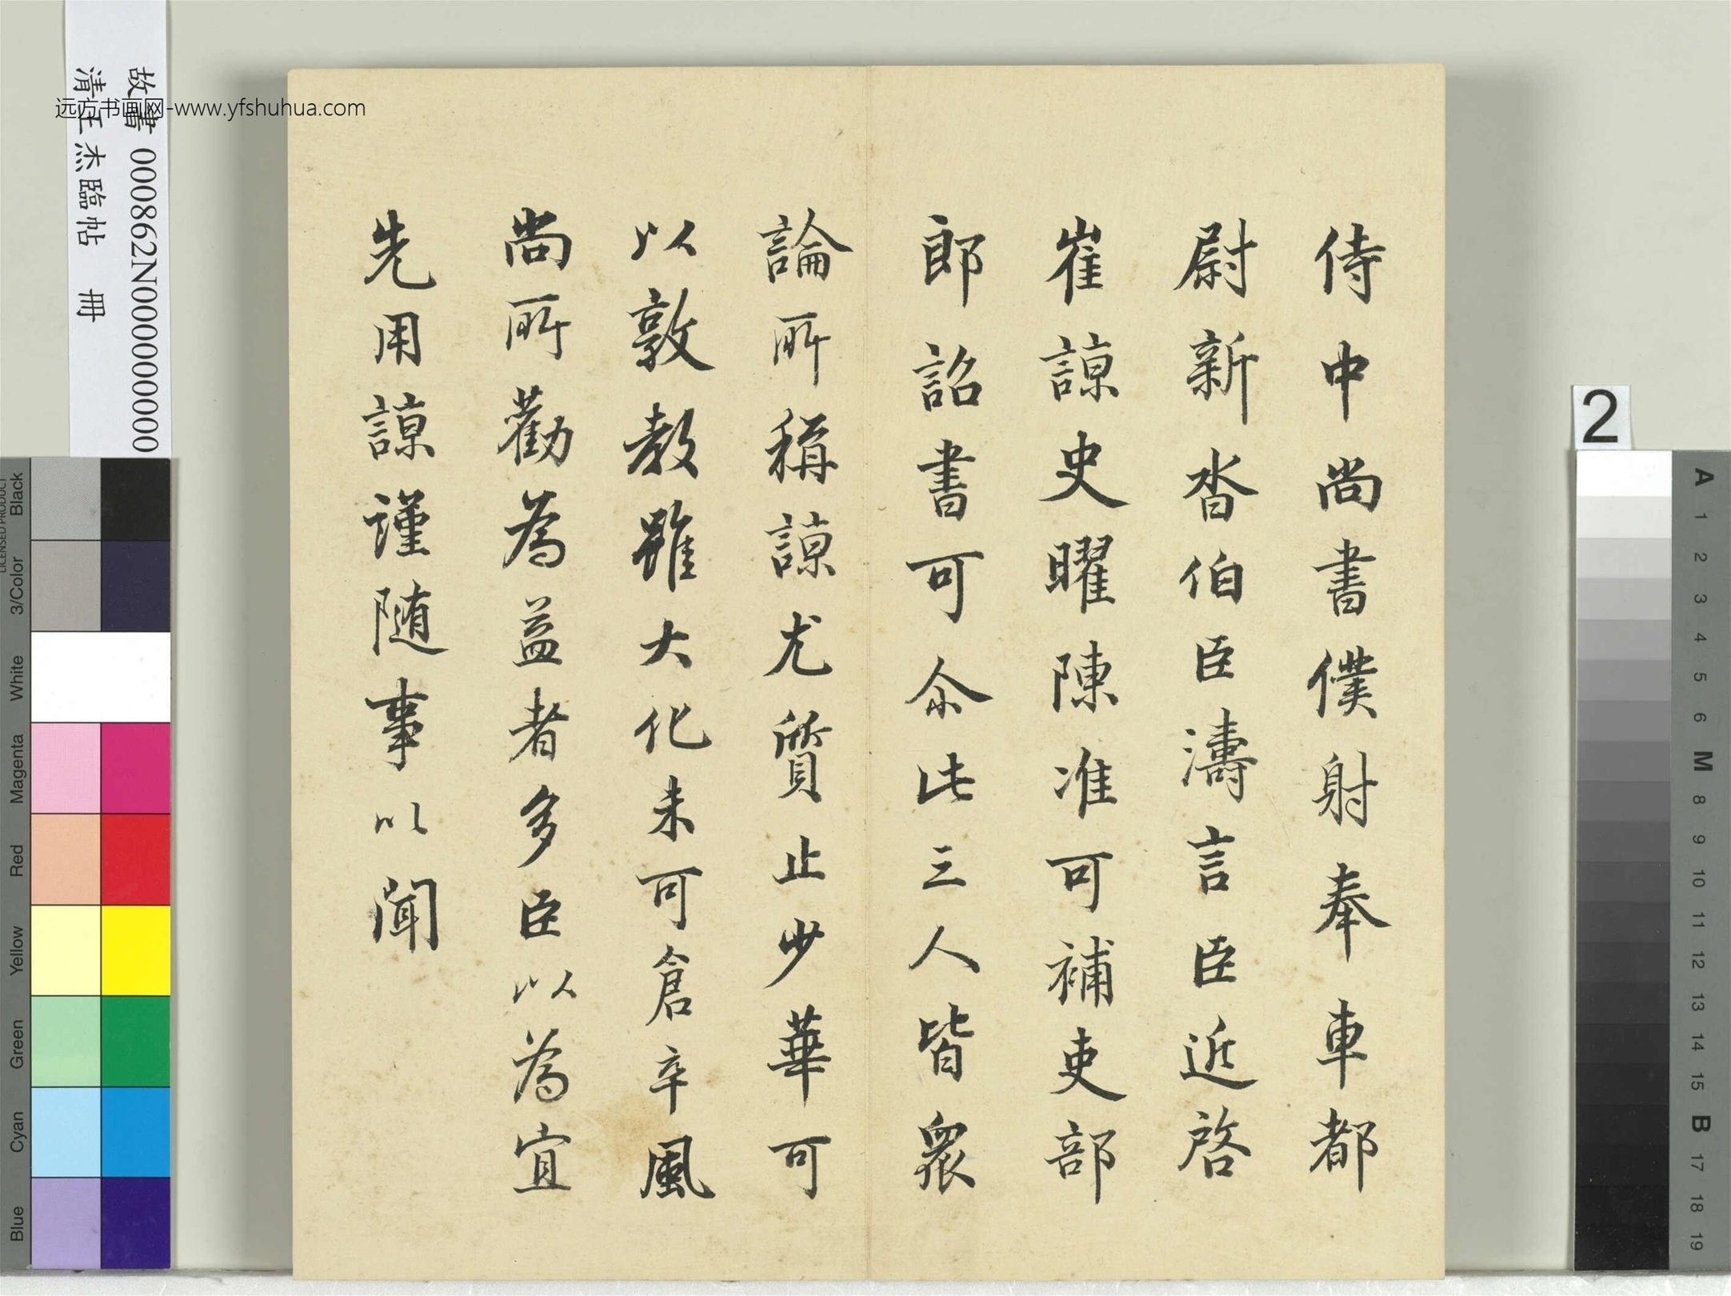 侍中尚書僕射奉車都
尉新沓伯臣濤言臣近啓
崔諒史曜陳准可補吏部
郎詔書可尒此三人皆衆
論所稱諒尤質止少華可
以敦教雖大化未可倉卒風
尚所勸為益者多臣以為宜
先用諒謹随事以聞
故書 000862N000000000
清王杰臨帖 冊
远方书画网-www.yfshuhua.com
2
LICENSED PRODUCT
Black
3/Color
White
Magenta
Red
Yellow
Green
Cyan
Blue
A
1
2
3
4
5
6
M
8
9
10
11
12
13
14
15
B
17
18
19